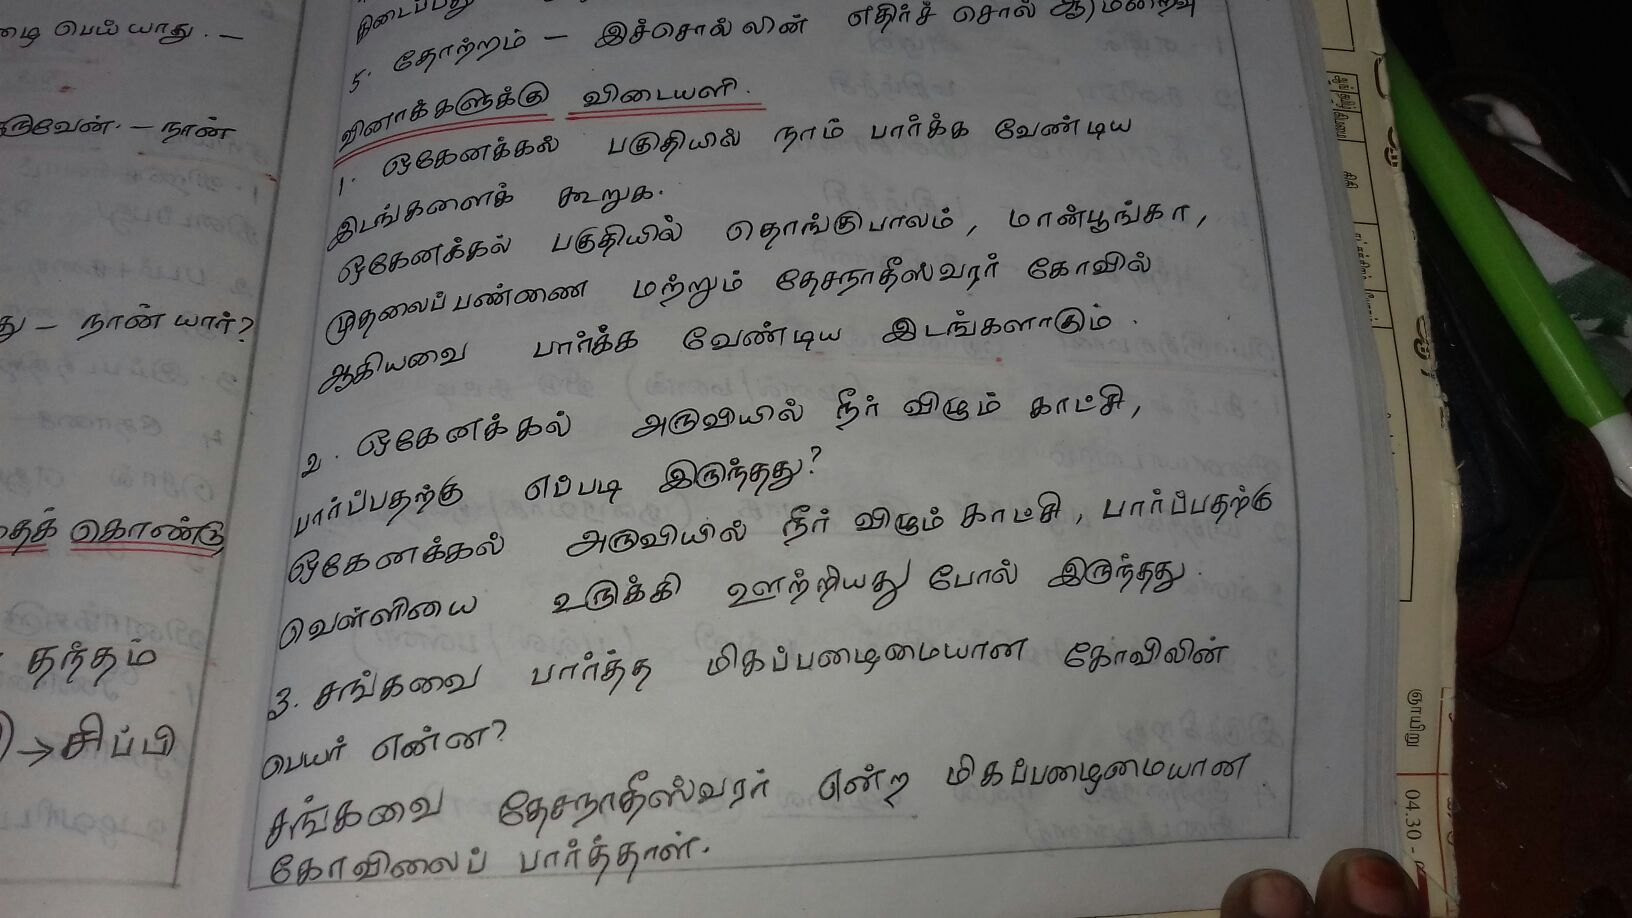 ழை பெய்யாது. –
ருவேன். – நான்
து – நான் யார்?
தைக் கொண்டு
தந்தம்
→ சிப்பி
கிடைப்பது
5. தோற்றம் – இச்சொல்லின் எதிர்ச் சொல்
வினாக்களுக்கு விடையளி.
1. ஒகேனக்கல் பகுதியில் நாம் பார்க்க வேண்டிய
இடங்களைக் கூறுக.
ஒகேனக்கல் பகுதியில் தொங்குபாலம், மான்பூங்கா,
முதலைப்பண்ணை மற்றும் தேசநாதீஸ்வரர் கோவில்
ஆகியவை பார்க்க வேண்டிய இடங்களாகும்.
2. ஒகேனக்கல் அருவியில் நீர் விழும் காட்சி,
பார்ப்பதற்கு எப்படி இருந்தது?
ஒகேனக்கல் அருவியில் நீர் விழும் காட்சி, பார்ப்பதற்கு
வெள்ளியை உருக்கி ஊற்றியது போல் இருந்தது.
3. சங்கவை பார்த்த மிகப்பழைமையான கோவிலின்
பெயர் என்ன?
சங்கவை தேசநாதீஸ்வரர் என்ற மிகப்பழைமையான
கோவிலைப் பார்த்தாள்.
ஞாயிறு
04.30 -